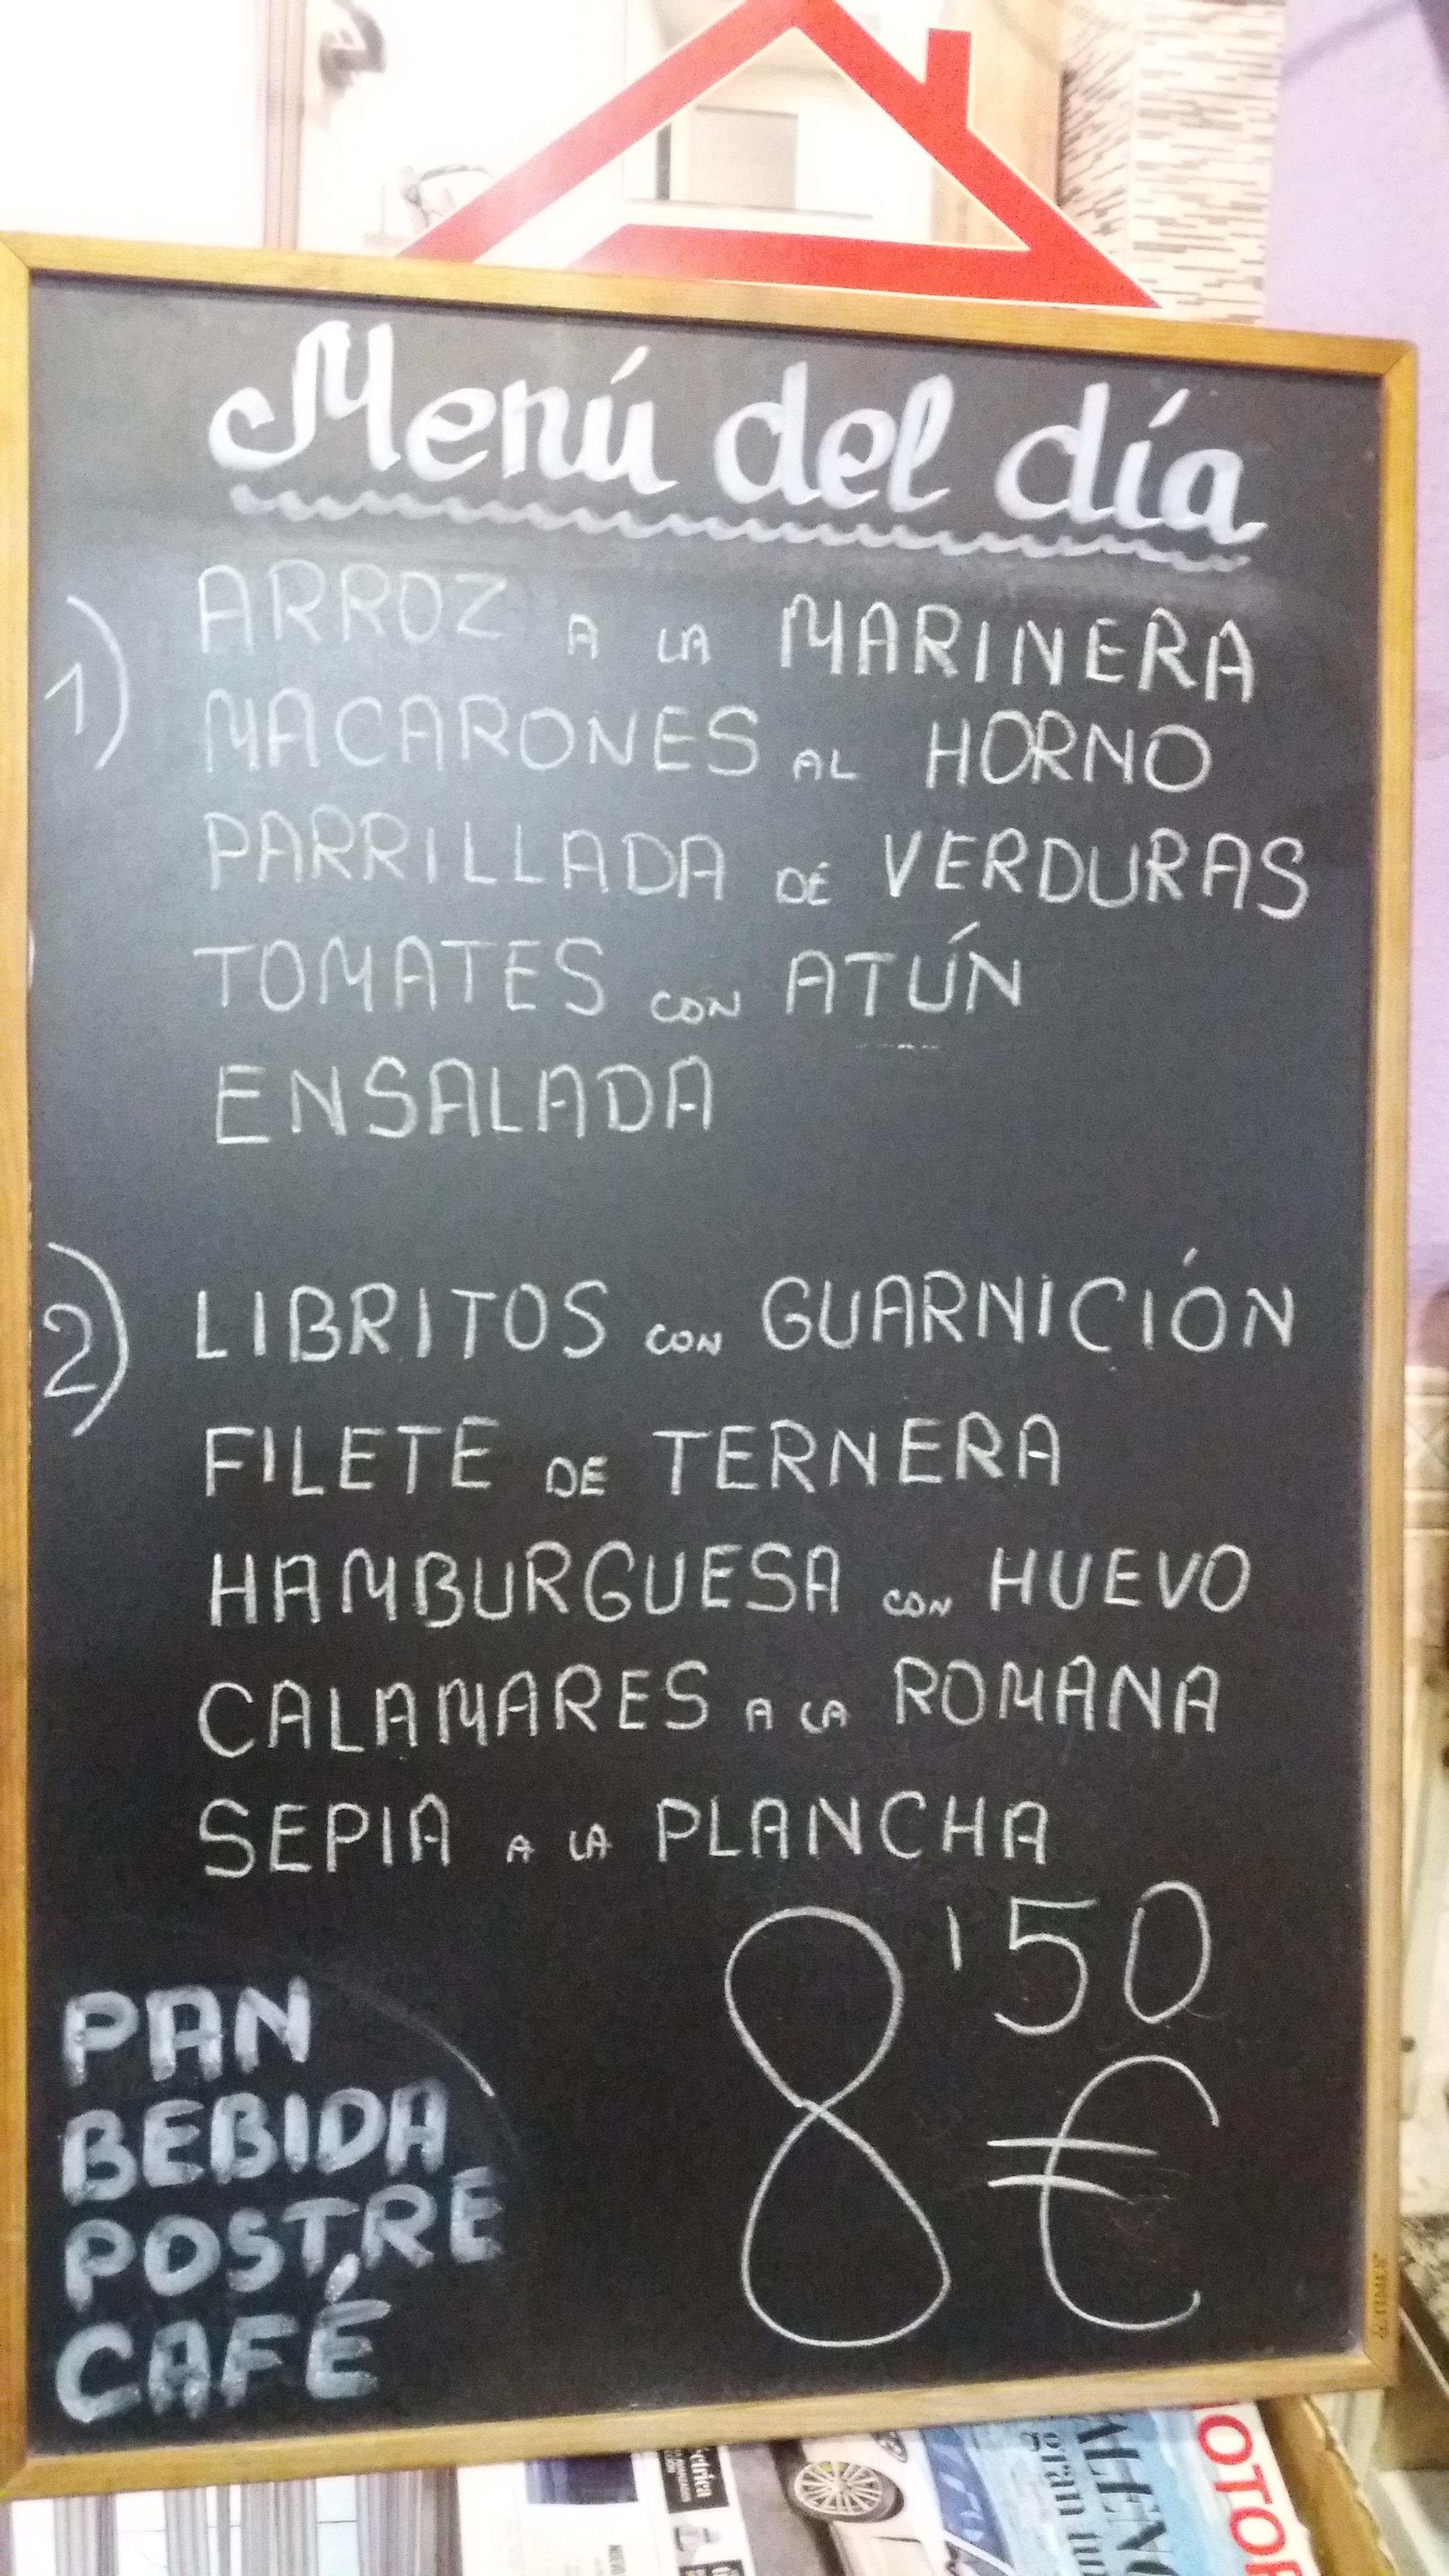 Menú del día
1) ARROZ A LA MARINERA
MACARONES AL HORNO
PARRILLADA DE VERDURAS
TOMATES CON ATÚN
ENSALADA
2) LIBRITOS CON GUARNICIÓN
FILETE DE TERNERA
HAMBURGUESA CON HUEVO
CALAMARES A LA ROMANA
SEPIA A LA PLANCHA
8'50 €
PAN
BEBIDA
POSTRE
CAFÉ